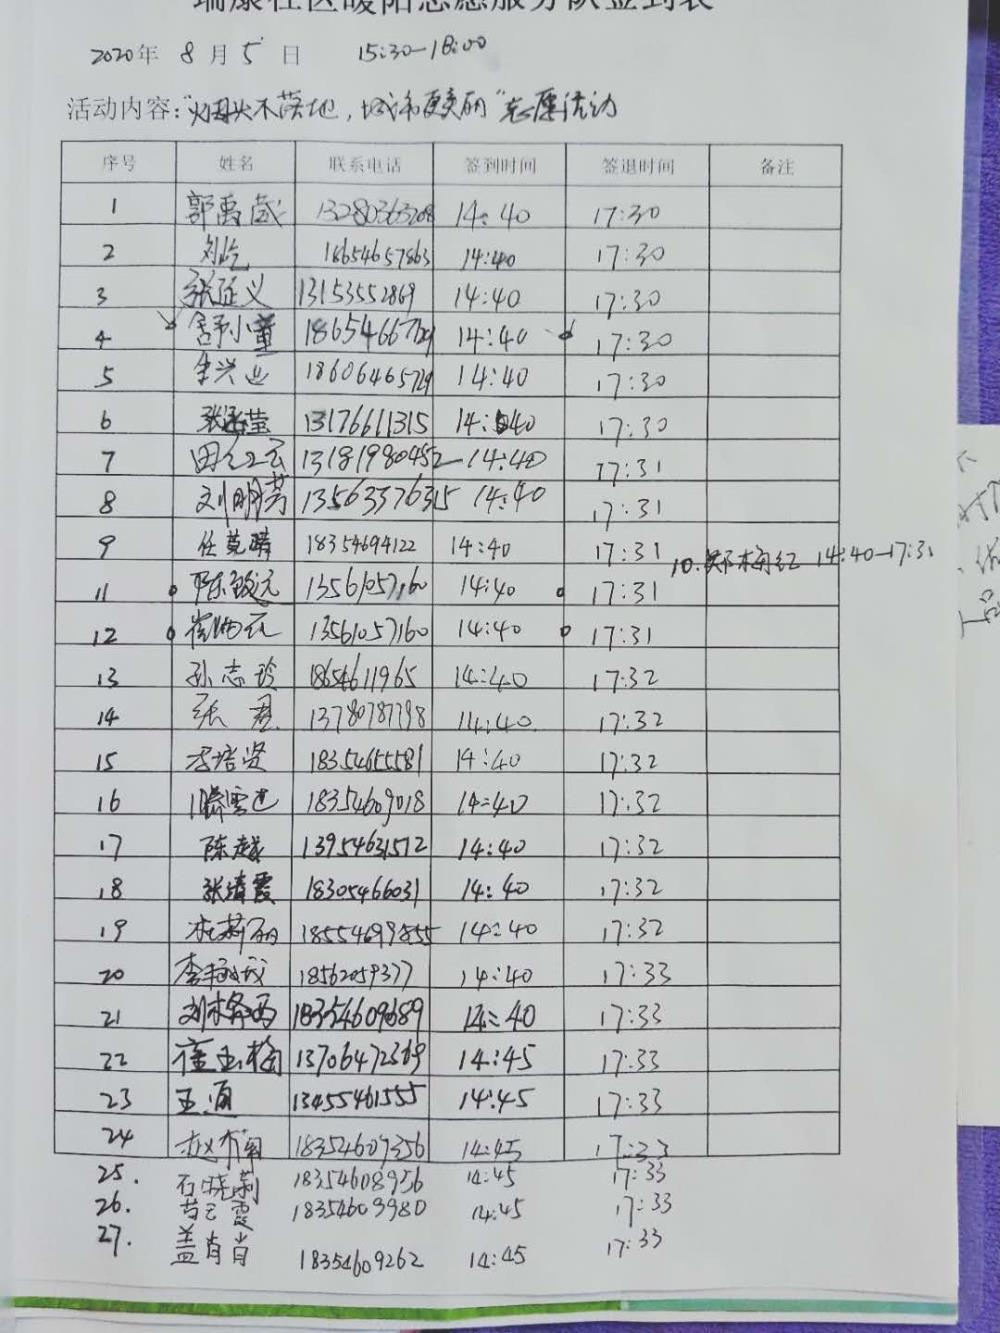 瑞康社区暖阳志愿服务队签到表
2020年 8月5日 15:30-18:00
活动内容:"烟头不落地,城市更美丽"志愿活动
序号 姓名 联系电话 签到时间 签退时间 备注
1 郭禹 14:40 17:30
2 刘屹 18654657863 14:40 17:30
3 张延义 13153552869 14:40 17:30
4 舒小童 14:40 17:30
5 李兴业 18606465729 14:40 17:30
6 张涵莹 13176611315 14:40 17:30
7 田红云 13181980452 14:40 17:31
8 刘明芳 13563376315 14:40 17:31
9 任莞晴 18354694122 14:40 17:31
10. 郑梅红 14:40-17:31
11 陈毅元 13561057160 14:40 17:31
12 13561057160 14:40 17:31
13 孙志玲 18654611965 14:40 17:32
14 张君 13780787798 14:40 17:32
15 李培贤 18354655581 14:40 17:32
16 滕雪 18354609018 14:40 17:32
17 陈越 13954631512 14:40 17:32
18 张清霞 18305466031 14:40 17:32
19 杜莉丽 18554699855 14:40 17:32
20 李 18562059377 14:40 17:33
21 刘 18354609689 14:40 17:33
22 崔玉梅 13706472369 14:45 17:33
23 王真 13455461555 14:45 17:33
24 赵 18354609356 14:45 17:33
25. 石晓莉 18354608956 14:45 17:33
26. 霞 18354603980 14:45 17:33
27. 盖肖肖 18354609262 14:45 17:33